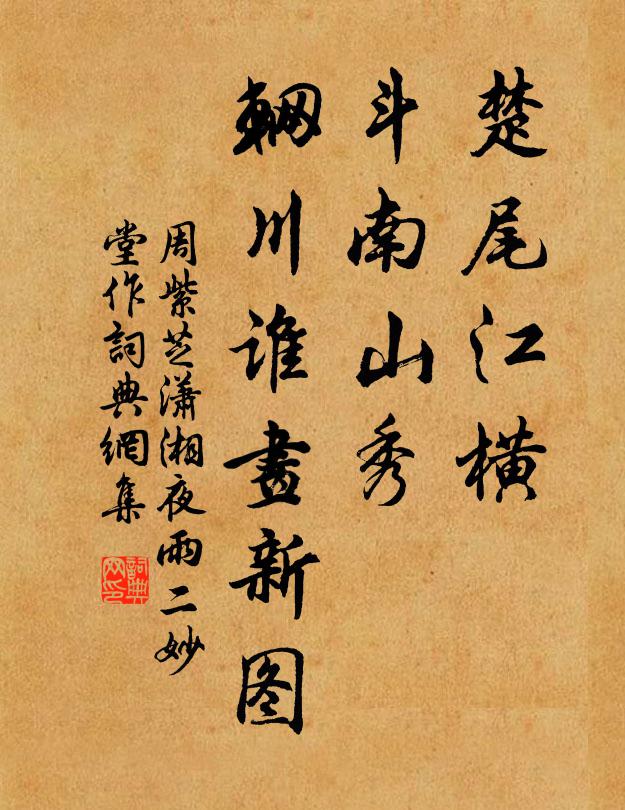 楚尾江横
斗南山秀
輞川谁畫新图
周紫芝潇湘夜雨二妙
堂作詞典網集
詞典
网印